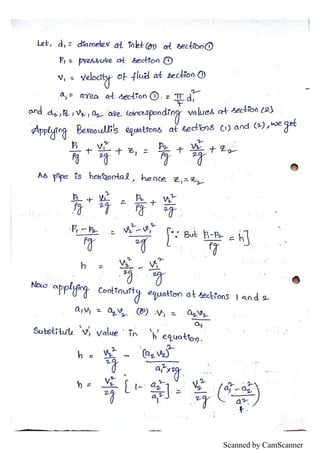 Let, d₁ = diameter at inlet (or) at section ①
P₁ = pressure at section ①
V₁ = velocity of fluid at section ①
a₁ = area at section ①. = π/4 d₁²
and d₂, P₂, V₂, a₂ are corresponding values at section (2)
Applying Bernoulli's equations at sections (1) and (2), we get
P₁/ρg + V₁²/2g + z₁ = P₂/ρg + V₂²/2g + z₂
As pipe is horizontal, hence z₁ = z₂
P₁/ρg + V₁²/2g = P₂/ρg + V₂²/2g
P₁-P₂/ρg = V₂²-V₁²/2g [∵ But P₁-P₂/ρg = h]
h = V₂²/2g - V₁²/2g
Now applying continuity equation at sections 1 and 2
a₁V₁ = a₂V₂ (or) V₁ = a₂V₂/a₁
Substitute 'V₁' value in 'h' equation.
h = V₂²/2g - (a₂V₂)²/a₁²×2g
h = V₂²/2g [1 - a₂²/a₁²] = V₂²/2g (a₁²-a₂²/a₁²)
Scanned by CamScanner